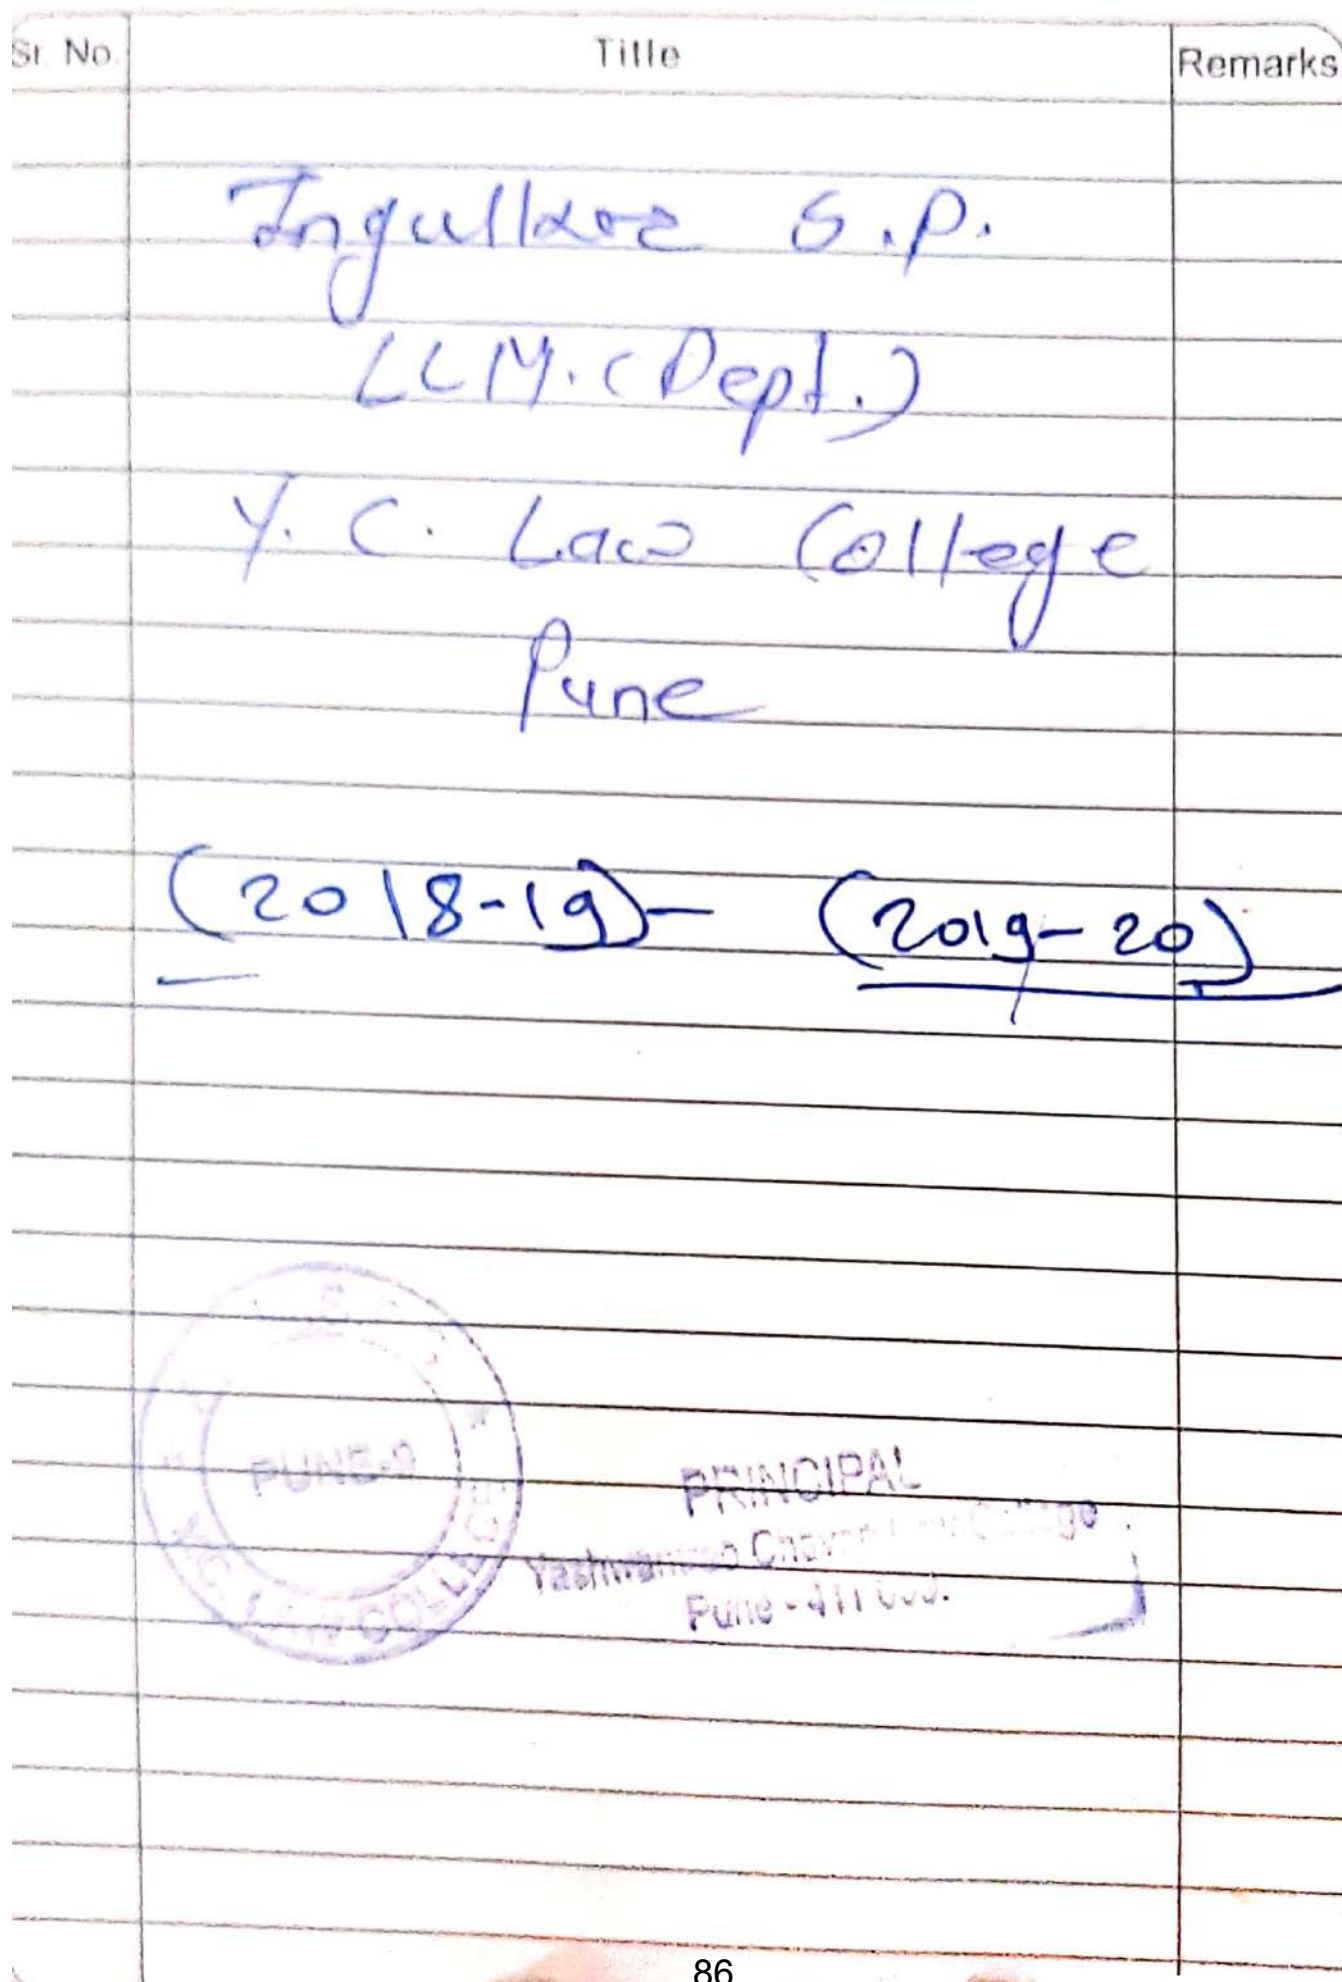 Sr. No. Title Remarks
Ingulkar S.P.
LLM. (Dept.)
Y. C. Law College
Pune
(2018-19) - (2019-20)
PUNE-9
LAW COLLEGE
PRINCIPAL
Chavan Law College
Pune - 411
86